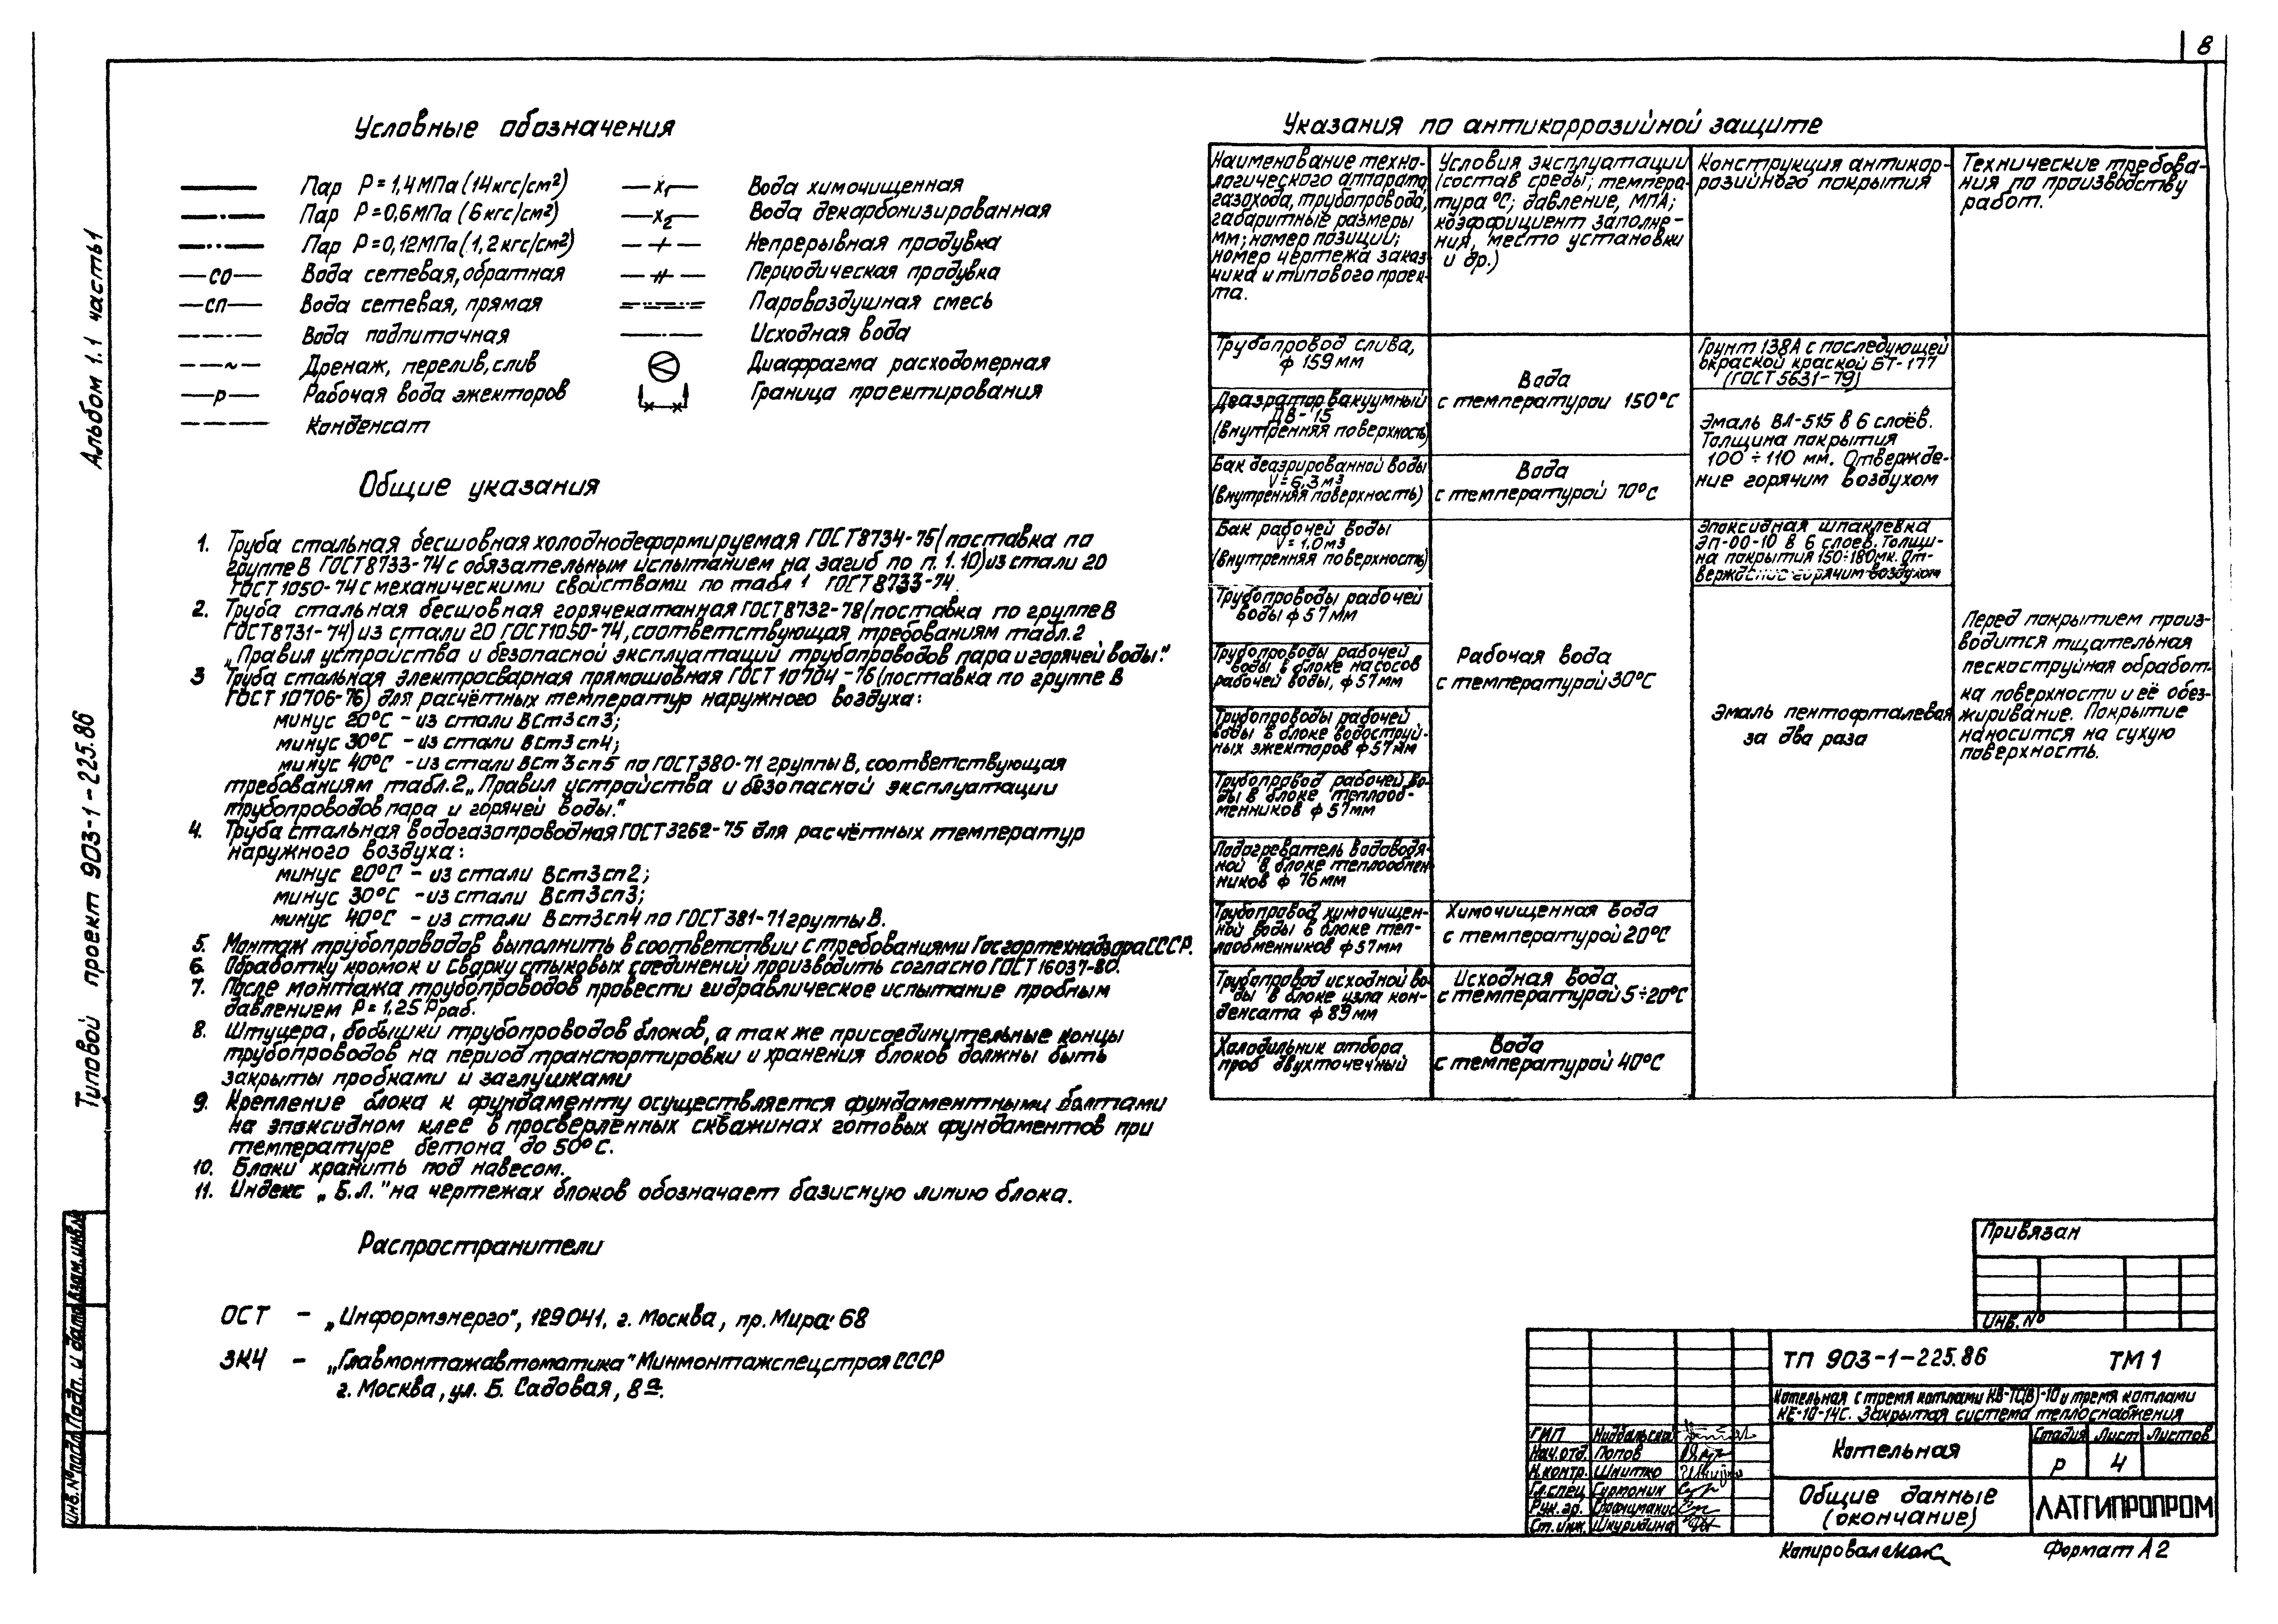 8
Альбом 1.1 часть1
Типовой проект 903-1-225.86
Условные обозначения
Пар Р=1,4МПа(14кгс/см²)
Пар Р=0,6МПа(6кгс/см²)
Пар Р=0,12МПа(1,2кгс/см²)
—СО— Вода сетевая, обратная
—СП— Вода сетевая, прямая
Вода подпиточная
Дренаж, перелив, слив
—р— Рабочая вода эжекторов
Конденсат
—Х₁— Вода химочищенная
—Х₂— Вода декарбонизированная
Непрерывная продувка
Периодическая продувка
Паровоздушная смесь
Исходная вода
Диафрагма расходомерная
Граница проектирования
Общие указания
1. Труба стальная бесшовная холоднодеформируемая ГОСТ8734-75(поставка по
группе В ГОСТ8733-74 с обязательным испытанием на загиб по п. 1.10)из стали 20
ГОСТ 1050-74 с механическими свойствами по табл 1 ГОСТ8733-74.
2. Труба стальная бесшовная горячекатанная ГОСТ8732-78(поставка по группе В
ГОСТ8731-74)из стали 20 ГОСТ1050-74, соответствующая требованиям табл.2
„Правил устройства и безопасной эксплуатаций трубопроводов пара и горячей воды".
3 Труба стальная электросварная прямошовная ГОСТ 10704-76(поставка по группе В
ГОСТ 10706-76) для расчётных температур наружного воздуха:
минус 20°С - из стали ВСт3сп3;
минус 30°С - из стали ВСт3сп4;
минус 40°С - из стали ВСт3сп5 по ГОСТ380-71 группы В, соответствующая
требованиям табл.2„Правил устройства и безопасной эксплуатации
трубопроводов пара и горячей воды."
4. Труба стальная водогазопроводная ГОСТ3262-75 для расчётных температур
наружного воздуха:
минус 20°С - из стали ВСт3сп2;
минус 30°С - из стали ВСт3сп3;
минус 40°С - из стали ВСт3сп4 по ГОСТ381-71 группы В.
5. Монтаж трубопроводов выполнить в соответствии с требованиями Госгортехнадзора СССР.
6. Обработку кромок и сварку стыковых соединений производить согласно ГОСТ 16037-80.
7. После монтажа трубопроводов провести гидравлическое испытание пробным
давлением Р=1,25 Рраб.
8. Штуцера, бобышки трубопроводов блоков, а так же присоединительные концы
трубопроводов на период транспортировки и хранения блоков должны быть
закрыты пробками и заглушками
9. Крепление блока к фундаменту осуществляется фундаментными болтами
на эпоксидном клее в просверленных скважинах готовых фундаментов при
температуре бетона до 50°С.
10. Блоки хранить под навесом.
11. Индекс „Б.Л." на чертежах блоков обозначает базисную линию блока.
Распространители
ОСТ - „Информэнерго", 129041, г. Москва, пр. Мира 68
ЗКЧ - „Главмонтажавтоматика" Минмонтажспецстроя СССР
г. Москва, ул. Б. Садовая, 8а.
Указания по антикоррозийной защите
Наименование техно-
логического аппарата,
газохода, трубопровода,
габаритные размеры
мм; номер позиции;
номер чертежа заказ
чика и типового проек-
та.
Условия эксплуатации
(состав среды; темпера-
тура °С; давление, МПА;
коэффициент заполне-
ния, место установки
и др.)
Конструкция антикор-
розийного покрытия
Технические требова-
ния по производству
работ.
Трубопровод слива,
ф 159мм
Деаэратор вакуумный
ДВ-15
(внутренняя поверхность)
Вода
с температурой 150°С
Грунт 138А с последующей
окраской краской БТ-177
(ГОСТ 5631-79)
Эмаль ВЛ-515 в 6 слоёв.
Толщина покрытия
100÷110 мм. Отвержде-
ние горячим воздухом
Бак деаэрированной воды
V=6,3м³
(внутренняя поверхность)
Вода
с температурой 70°С
Бак рабочей воды
V=1,0м³
(внутренняя поверхность)
Эпоксидная шпаклевка
ЭП-00-10 в 6 слоев. Толщи-
на покрытия 150÷180мк. От-
верждение горячим воздухом
Трубопроводы рабочей
воды ф57мм
Трубопроводы рабочей
воды в блоке насосов
рабочей воды, ф57мм
Трубопроводы рабочей
воды в блоке водоструй-
ных эжекторов ф57мм
Трубопровод рабочей во-
ды в блоке теплооб-
менников ф 57мм
Подогреватель водоводя-
ной в блоке теплообмен
ников ф 76мм
Рабочая вода
с температурой 30°С
Эмаль пентофталевая
за два раза
Перед покрытием произ-
водится тщательная
пескоструйная обработ-
ка поверхности и её обез-
жиривание. Покрытие
наносится на сухую
поверхность.
Трубопровод химочищен-
ной воды в блоке теп-
лообменников ф57мм
Химочищенная вода
с температурой 20°С
Трубопровод исходной во-
ды в блоке узла кон-
денсата ф 89мм
Исходная вода
с температурой 5÷20°С
Холодильник отбора
проб двухточечный
Вода
с температурой 40°С
Привязан
Инв. №
ТП 903-1-225.86 ТМ1
Котельная с тремя котлами КВ-ТС(В)-10 и тремя котлами
КЕ-10-14С. Закрытая система теплоснабжения
ГИП
Нач.отд. Попов
Н.контр. Шнитко
Гл.спец
Рук.гр.
Ст.инж. Шкуридина
Котельная
Стадия Лист Листов
Р 4
Общие данные
(окончание)
ЛАТГИПРОПРОМ
Копировал
Формат А2
Инв.№подл. Подп. и дата Взам.инв.№